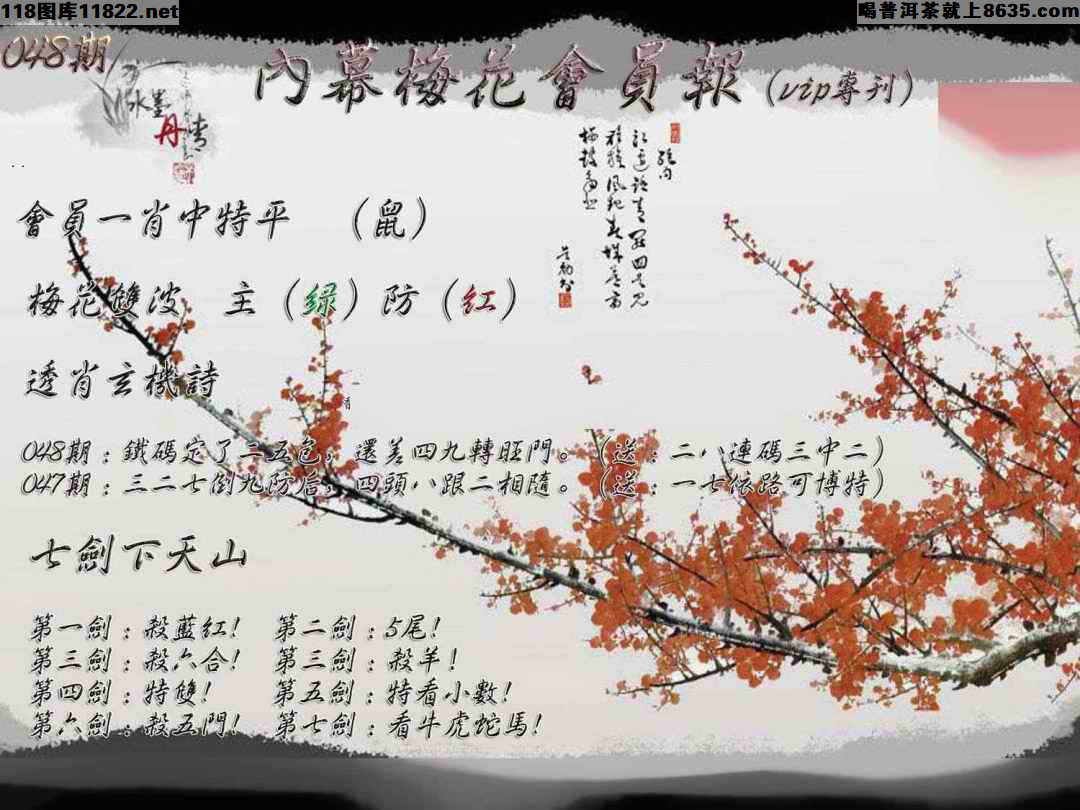 118图库11822.net
喝普洱茶就上8635.com
048期
內幕梅花會員報(vip專刊)
水墨
丹青
會員一肖中特平 （鼠）
梅花雙波 主（绿）防（红）
透肖玄機詩
048期：鐵碼定了二五包，還差四九轉旺門。（送：二八連碼三中二）
047期：三二七倒九防后，四頭八跟二相隨。（送：一七依路可博特）
七劍下天山
第一劍：殺藍红! 第二劍：5尾!
第三劍：殺六合! 第三劍：殺羊!
第四劍：特雙! 第五劍：特看小數!
第六劍：殺五門! 第七劍：看牛虎蛇馬!